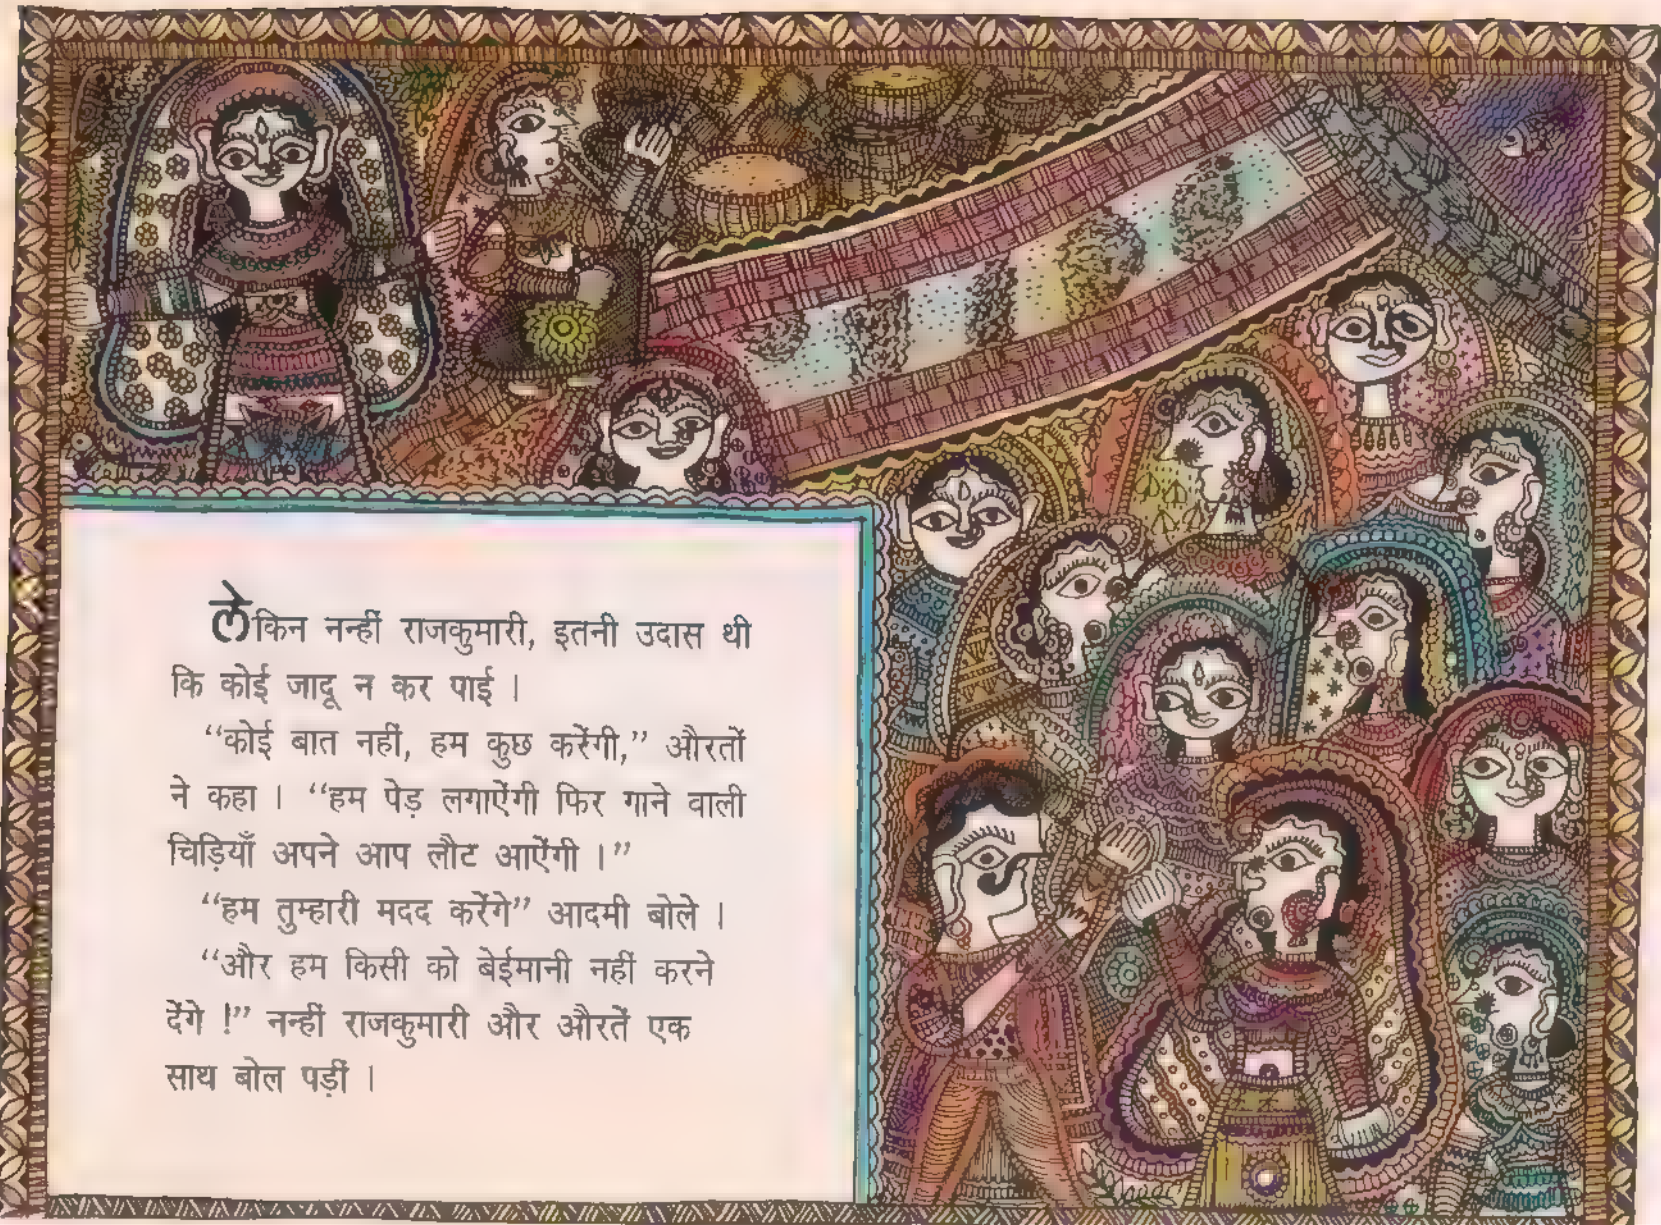 लेकिन नन्हीं राजकुमारी, इतनी उदास थी
कि कोई जादू न कर पाई ।
“कोई बात नहीं, हम कुछ करेंगी,” औरतों
ने कहा । “हम पेड़ लगाऐंगी फिर गाने वाली
चिड़ियाँ अपने आप लौट आऐंगी ।”
“हम तुम्हारी मदद करेंगे” आदमी बोले ।
“और हम किसी को बेईमानी नहीं करने
देंगे !” नन्हीं राजकुमारी और औरतें एक
साथ बोल पड़ीं ।